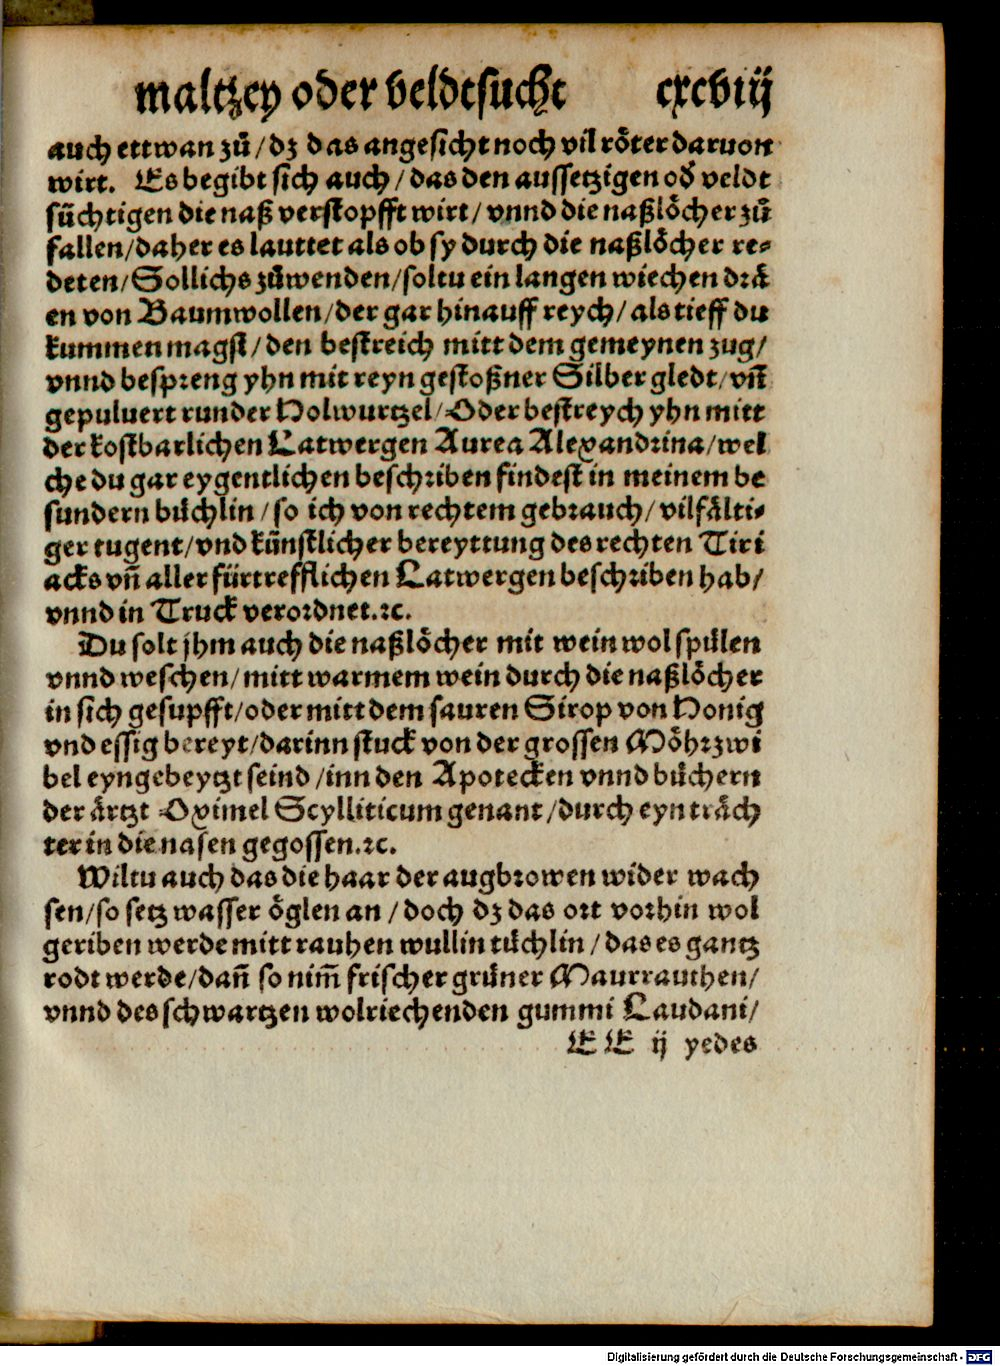 maltzey oder veldtsucht cxcviij
auch ettwan zů/dz das angesicht noch vil röter daruon
wirt. Es begibt sich auch/das den aussetzigen oď veldt
süchtigen die naß verstopfft wirt/vnnd die naßlöcher zů
fallen/daher es lauttet als ob sy durch die naßlöcher re-
deten/Sollichs zůwenden/soltu ein langen wiechen drä
en von Baumwollen/der gar hinauff reych/als tieff du
kummen magst/den bestreich mitt dem gemeynen zug/
vnnd bespreng yhn mit reyn gestoßner Silber gledt/vñ
gepuluert runder Holwurtzel/Oder bestreych yhn mitt
der kostbarlichen Latwergen Aurea Alexandrina/wel
che du gar eygentlichen beschriben findest in meinem be
sundern büchlin/so ich von rechtem gebrauch/vilfälti-
ger tugent/vnd künstlicher bereyttung des rechten Tiri
acks vñ aller fürtrefflichen Latwergen beschriben hab/
vnnd in Truck verordnet.ꝛc.
Du solt jhm auch die naßlöcher mit wein wol spülen
vnnd weschen/mitt warmem wein durch die naßlöcher
in sich gesupfft/oder mitt dem sauren Sirop von Honig
vnd essig bereyt/darinn stuck von der grossen Möhrzwi
bel eyngebeytzt seind/inn den Apotecken vnnd büchern
der ärtzt Oximel Scylliticum genant/durch eyn träch
ter in die nasen gegossen.ꝛc.
Wiltu auch das die haar der augbrowen wider wach
sen/so setz wasser öglen an/doch dz das ort vorhin wol
geriben werde mitt rauhen wullin tüchlin/das es gantz
rodt werde/dañ so nim̃ frischer grüner Maurrauthen/
vnnd des schwartzen wolriechenden gummi Laudani/
EE ij yedes
Digitalisierung gefördert durch die Deutsche Forschungsgemeinschaft - DFG